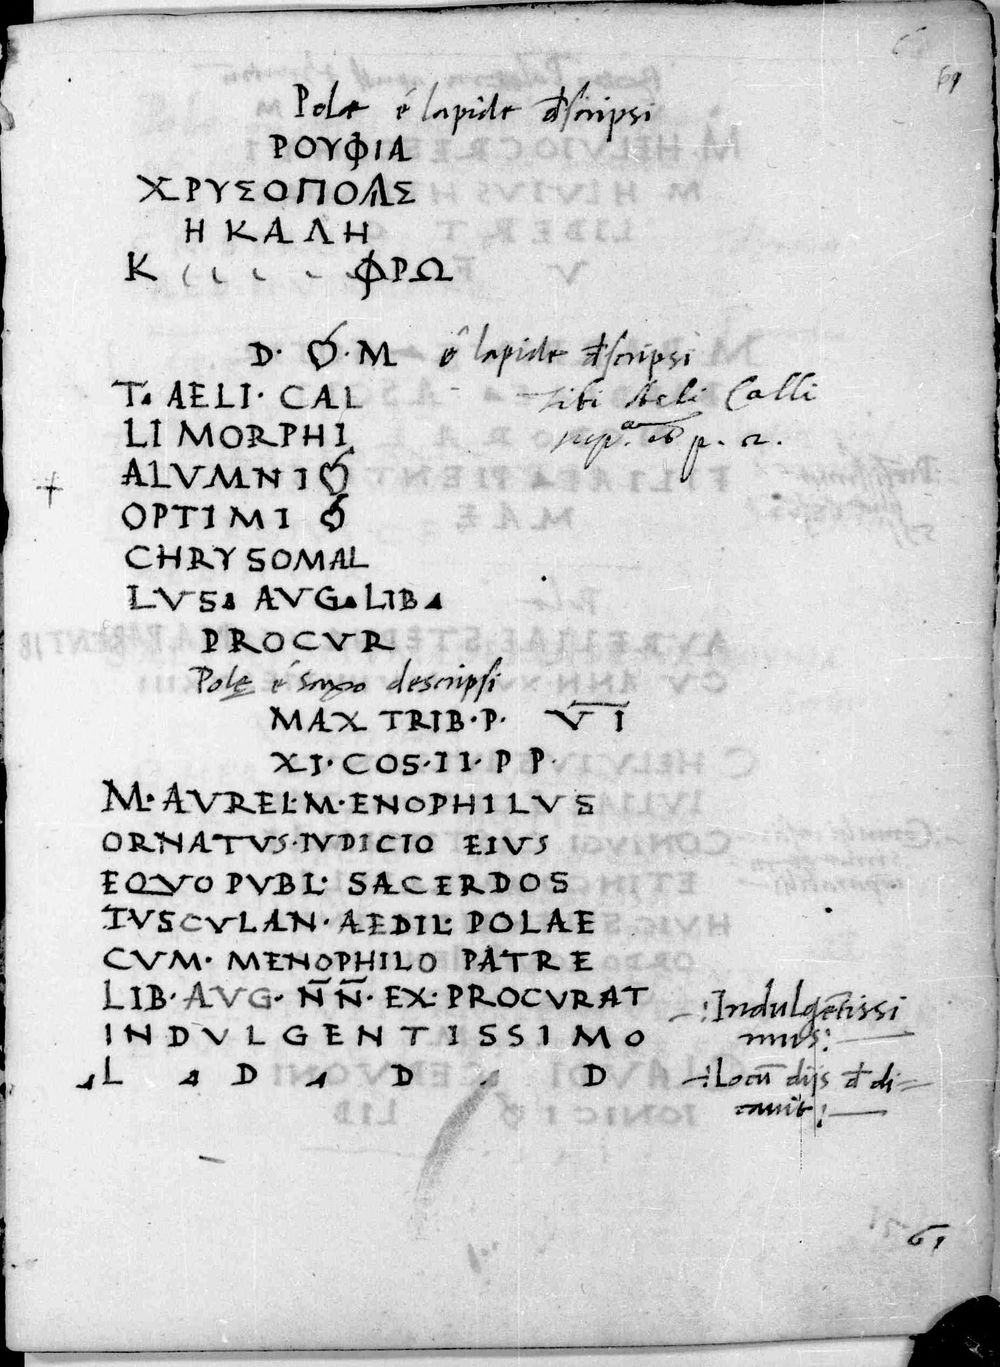 61
Pole é lapide dscripsi
ΡΟΥΦΙΑ
ΧΡΥΣΟΠΟΛΣ
Η ΚΑΛΗ
Κ . . . . ΦΡΩ
D. M é lapide dscripsi
T. AELI. CAL
LI MORPHI
Tibi Aeli Calli
ALVMNI
OPTIMI
CHRYSOMAL
LVS. AVG. LIB.
PROCVR
Polę é saxo descripsi
MAX TRIB. P. VI
XI. COS. II. P P.
M. AVREL. M. ENOPHILVS
ORNATVS. IVDICIO EIVS
EQVO PVBL. SACERDOS
TVSCVLAN. AEDIL. POLAE
CVM. MENOPHILO PATRE
LIB. AVG. N̄N̄. EX. PROCVRAT
INDVLGENTISSIMO
L D D D
-:Indulgētissi
mus:-
-:Locū dijs d di=
cauit:-
61